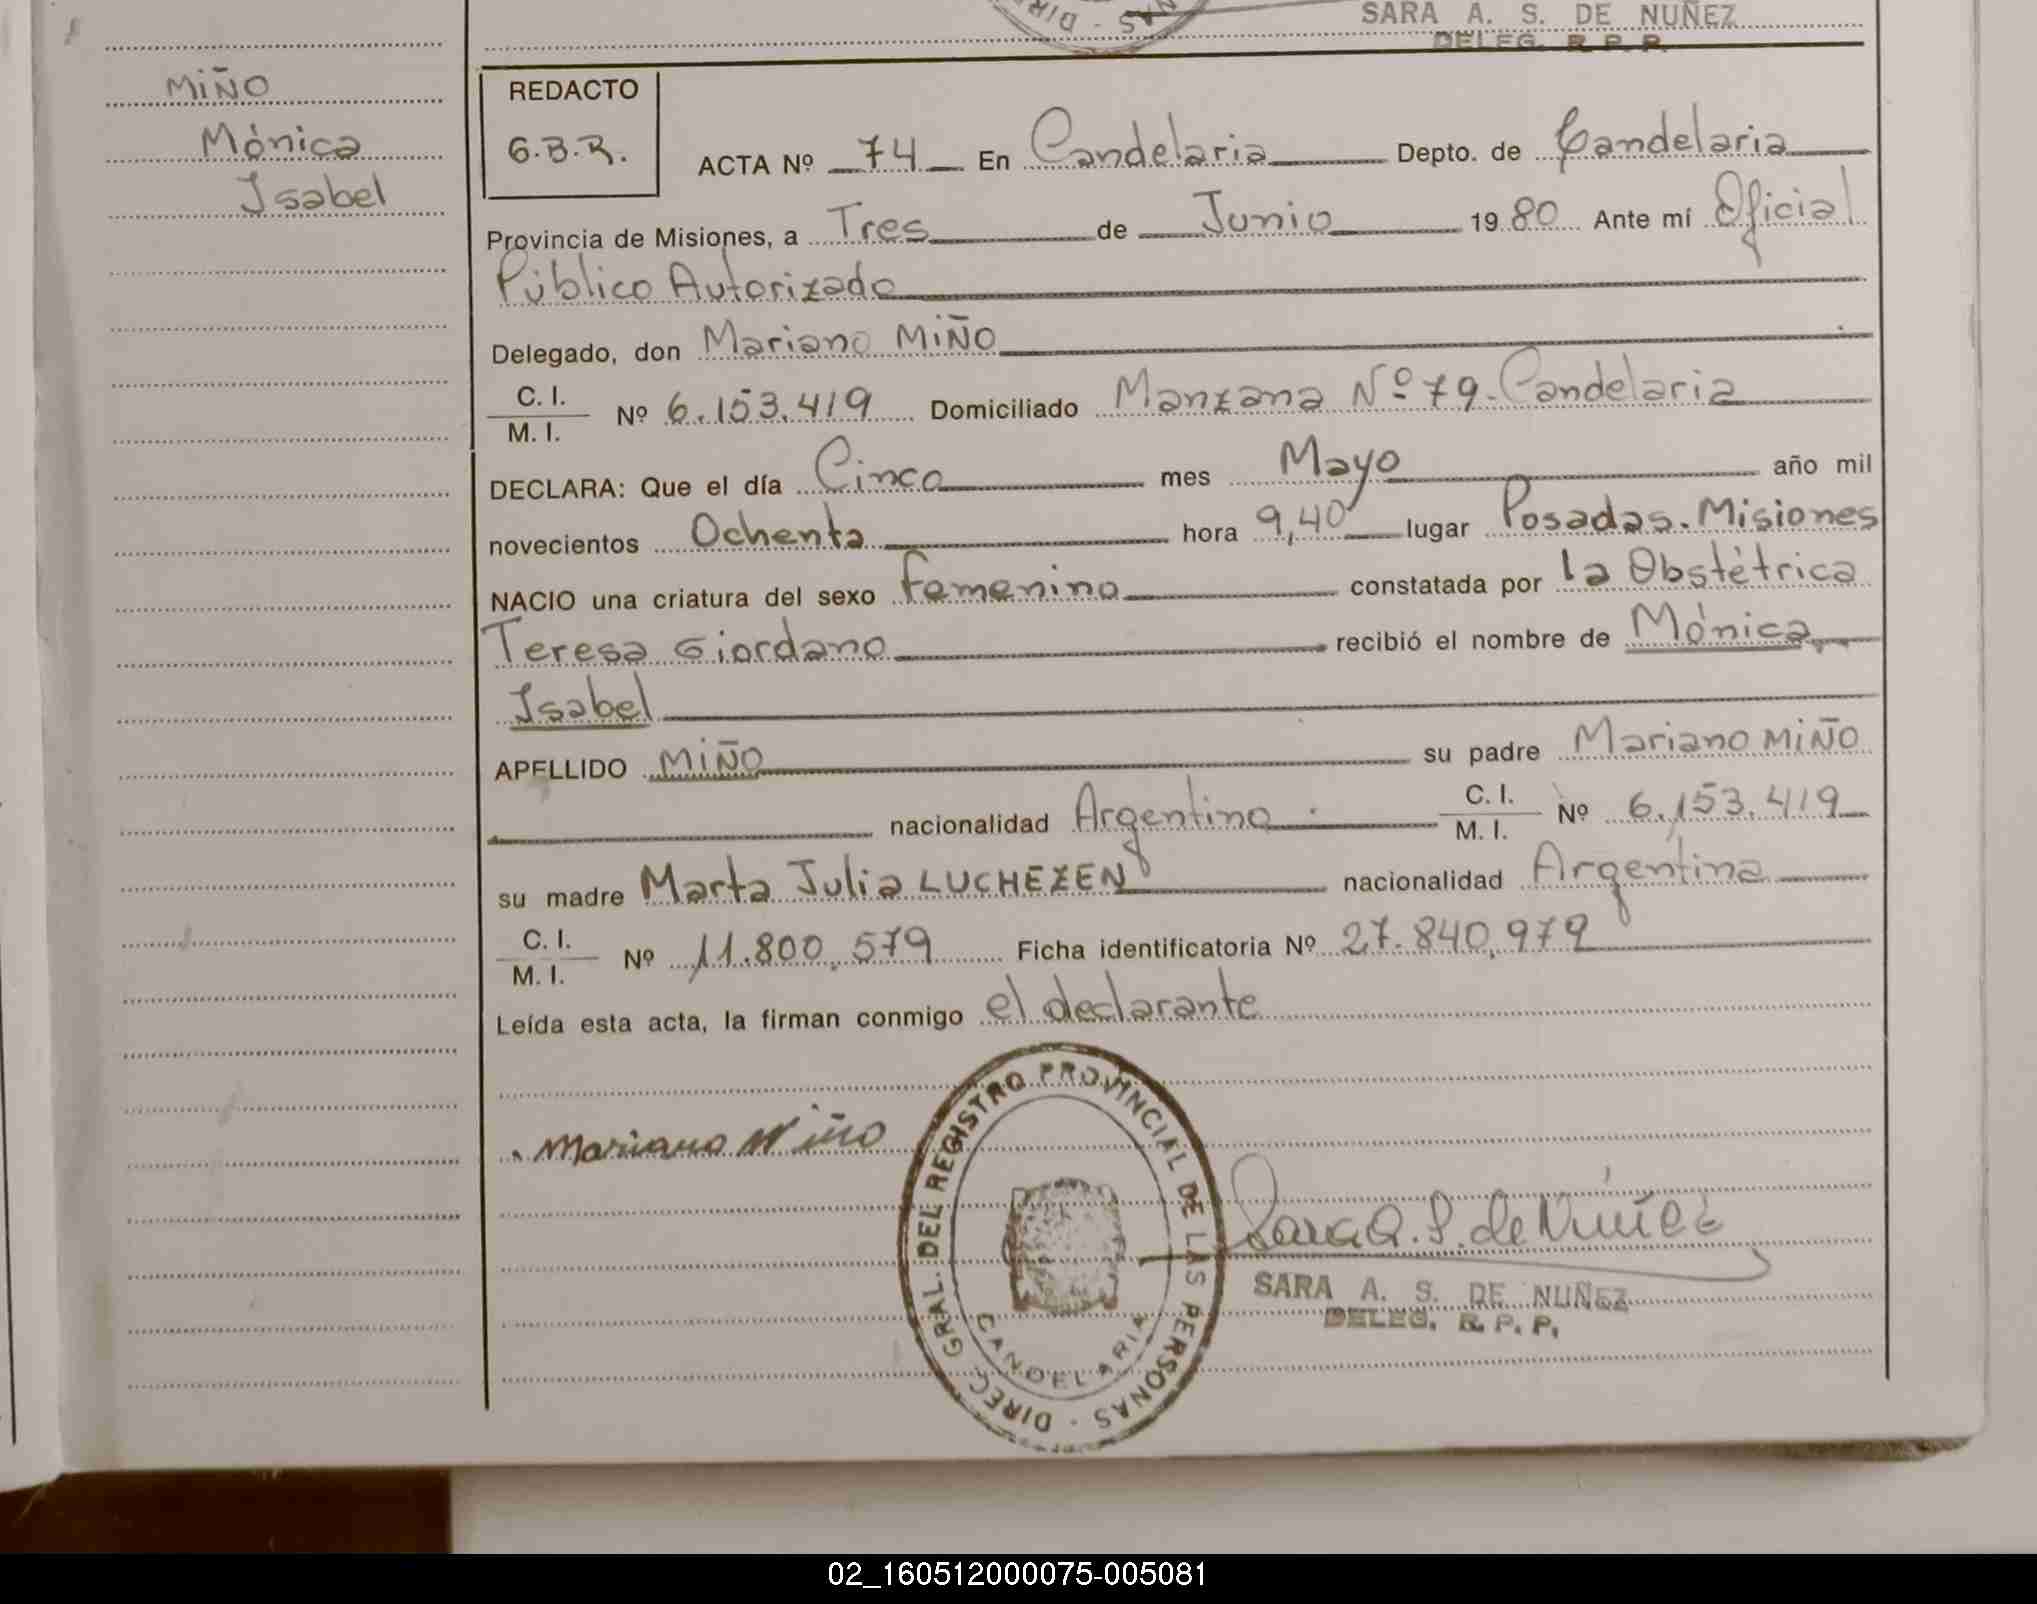 SARA A. S. DE NUÑEZ
DELEG. R. P. P.
MIÑO
Mónica
Isabel
REDACTO
G.B.R.
ACTA Nº 74 En Candelaria Depto. de Candelaria
Provincia de Misiones, a Tres de Junio 1980 Ante mí Oficial
Público Autorizado
Delegado, don Mariano MIÑO
C. I.
M. I. Nº 6.153.419 Domiciliado Manzana Nº 79. Candelaria
DECLARA: Que el día Cinco mes Mayo año mil
novecientos Ochenta hora 9,40 lugar Posadas. Misiones
NACIO una criatura del sexo femenino constatada por la Obstétrica
Teresa Giordano recibió el nombre de Mónica
Isabel
APELLIDO MIÑO su padre Mariano MIÑO
nacionalidad Argentino C. I.
M. I. Nº 6.153.419
su madre Marta Julia LUCHEZEN nacionalidad Argentina
C. I.
M. I. Nº 11.800.579 Ficha identificatoria Nº 27.840.979
Leída esta acta, la firman conmigo el declarante
Mariano Miño
DIREC. GRAL. DEL REGISTRO PROVINCIAL DE LAS PERSONAS
CANDELARIA
Sara A. S. de Núñez
SARA A. S. DE NUÑEZ
DELEG. R. P. P.
02_160512000075-005081